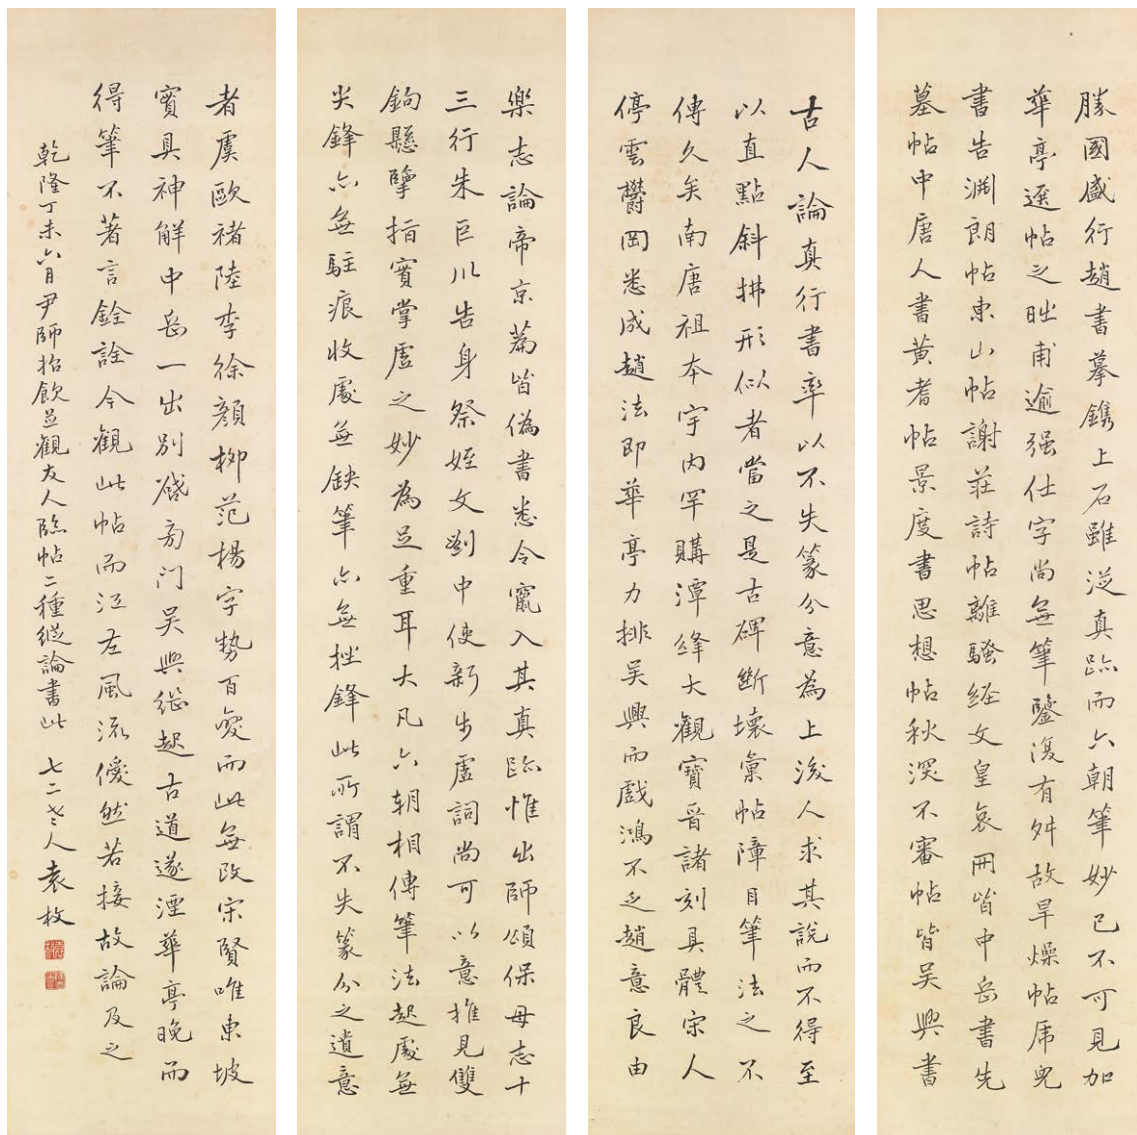 勝國盛行趙書摹鐫上石雖從真跡而六朝筆妙已不可見加
華亭選帖之昢甫逾强仕字尚無筆鑒復有舛故旱燥帖虎兒
書告淵朗帖東山帖謝莊詩帖離騷經文皇哀冊皆中岳書先
墓帖中唐人書黃耆帖景度書思想帖秋深不審帖皆吳興書
古人論真行書率以不失篆分意為上後人求其說而不得至
以直點斜拂形似者當之是古碑斷壞彙帖障目筆法之不
傳久矣南唐祖本宇內罕購潭絳大觀寶晉諸刻具體宋人
停雲鬱岡悉成趙法即華亭力排吳興而戲鴻不乏趙意良由
樂志論帝京篇皆偽書悉令竄入其真跡惟出師頌保母志十
三行朱巨川告身祭姪文劉中使新步虛詞尚可以意推見雙
鉤懸擘指實掌虛之妙為足重耳大凡六朝相傳筆法起處無
尖鋒亦無駐痕收處無缺筆亦無挫鋒此所謂不失篆分之遺意
者虞歐褚陸李徐顏柳范楊字勢百變而此無改宋賢唯東坡
實具神解中岳一出別啟旁門吳興繼起古道遂湮華亭晚而
得筆不著言銓詮今觀此帖而江左風流僾然若接故論及之
乾隆丁未六月尹師招飲並觀友人臨帖二種縱論書此 七二老人袁枚